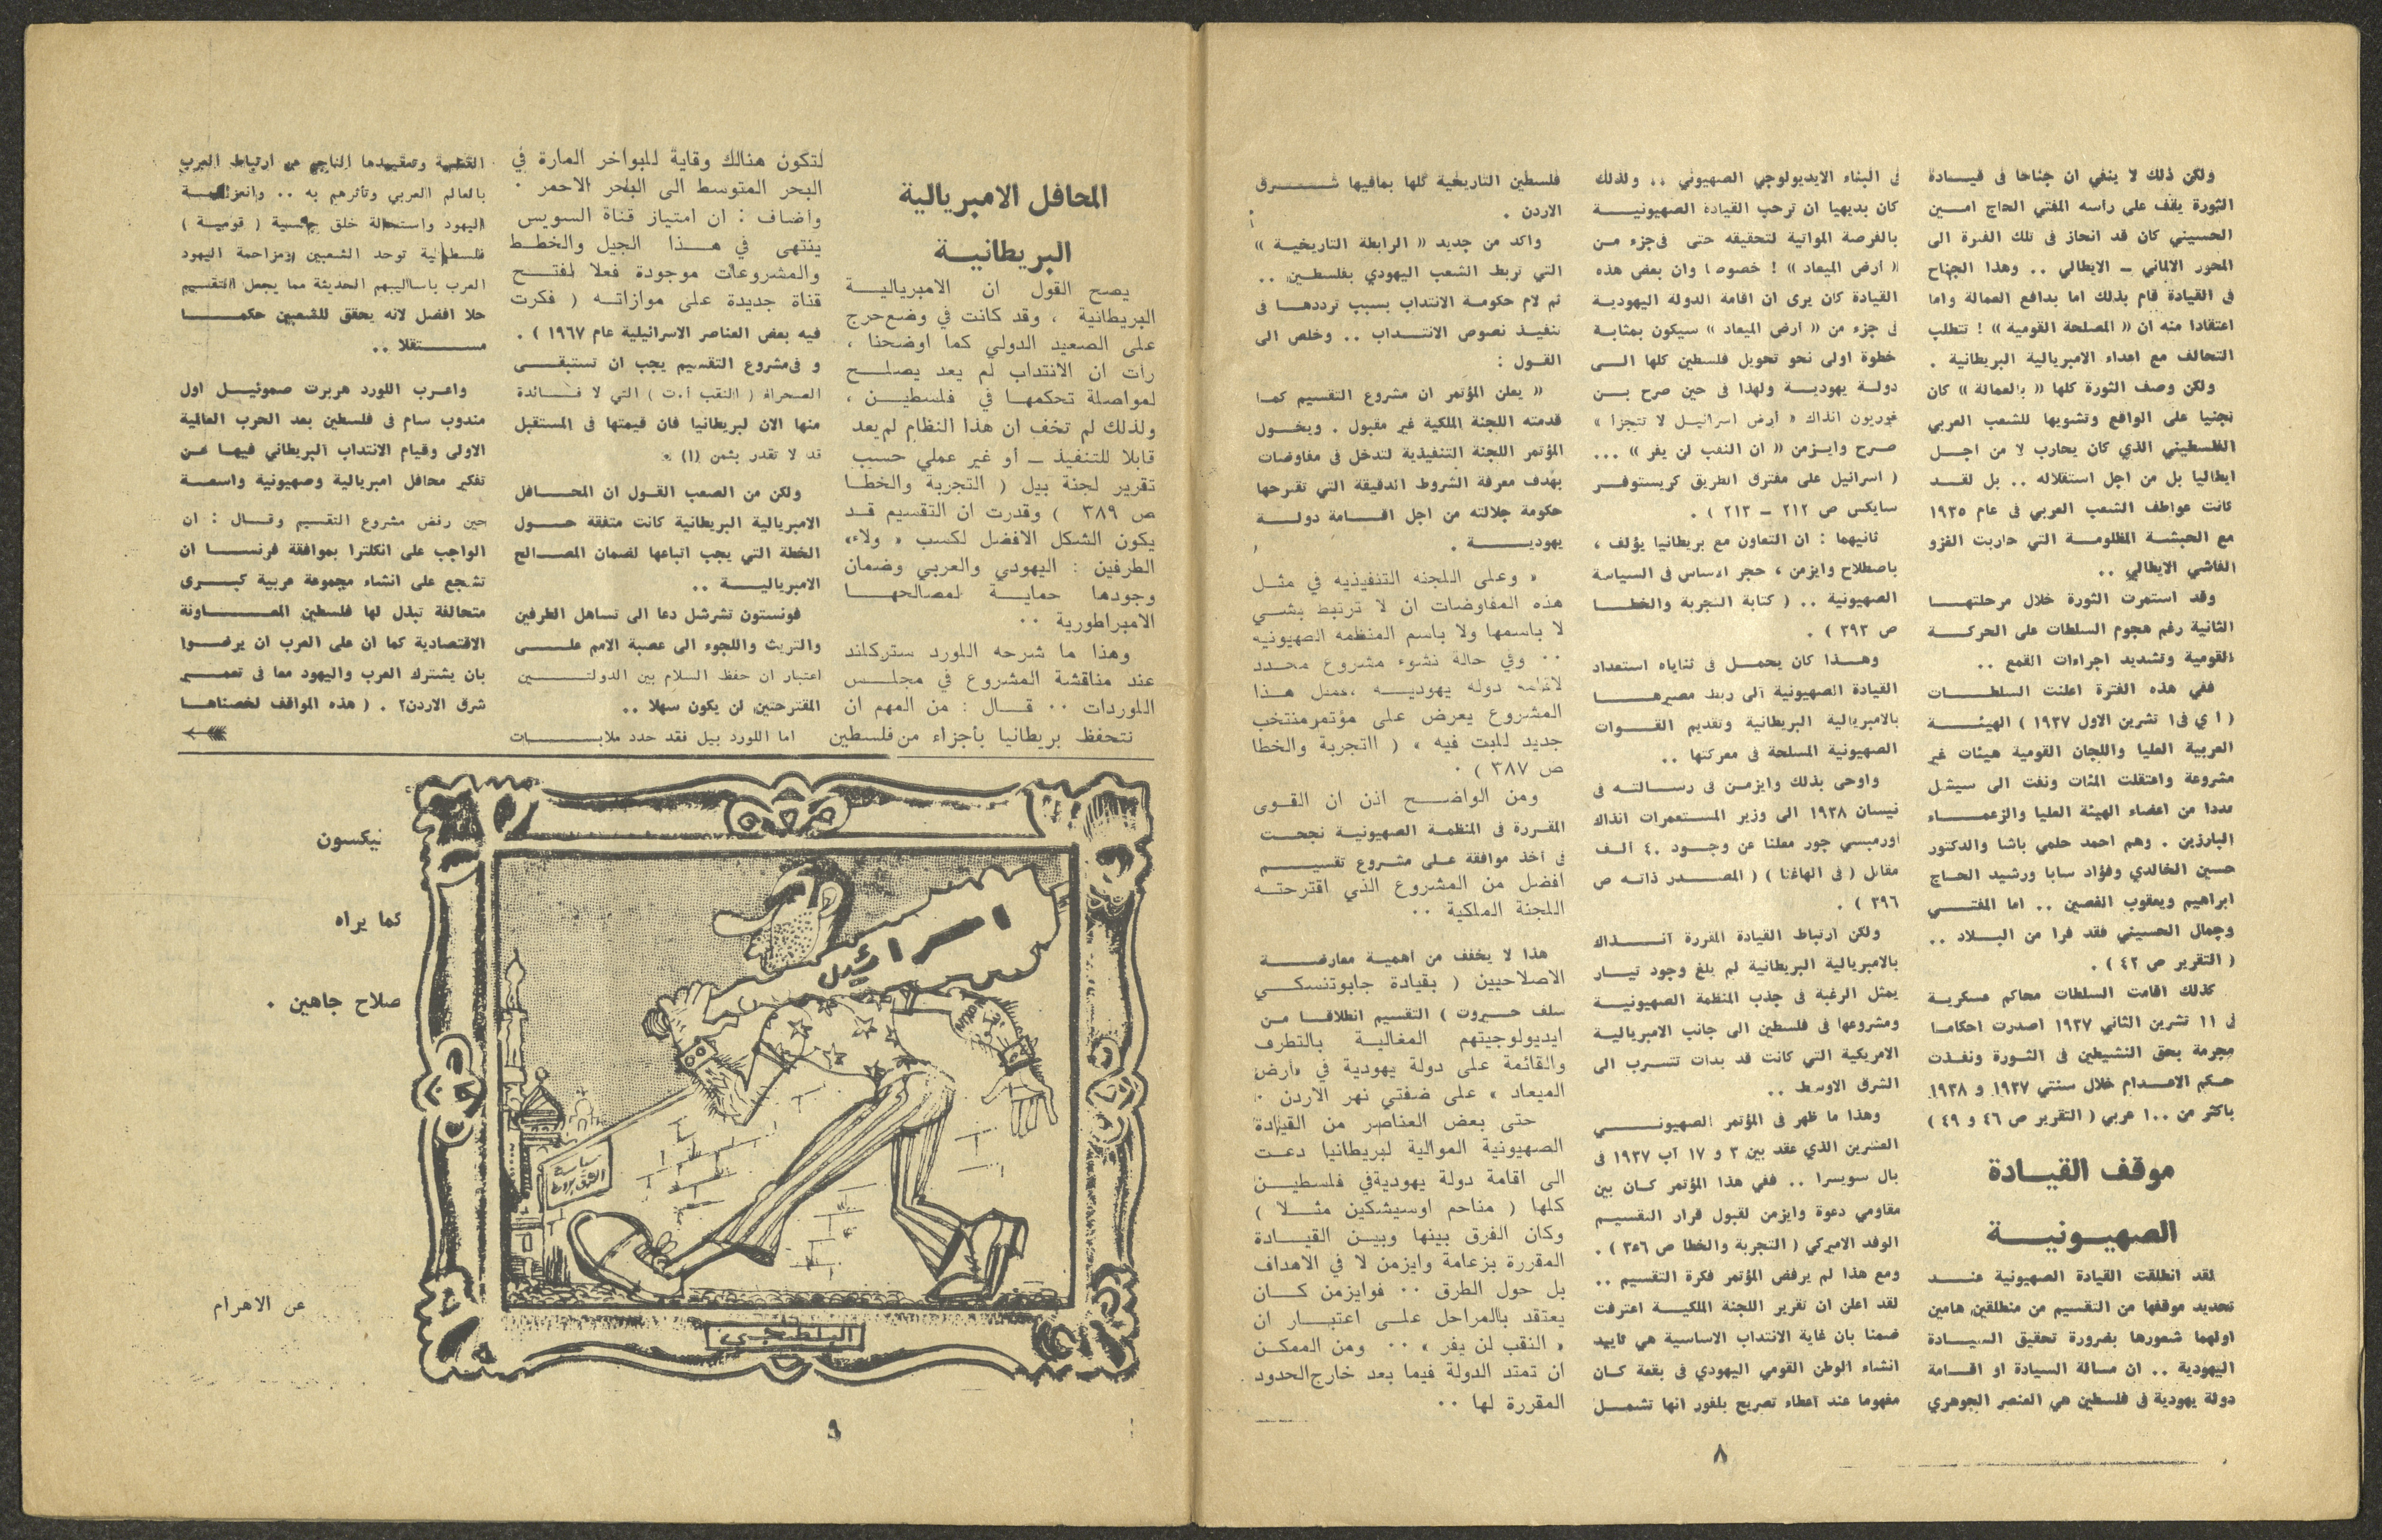 ولكن ذلك لا ينفي ان جناحا في قيـــادة
الثورة يقف على رأسه المفتي الحاج امــين
الحسيني كان قد انحاز في تلك الفترة الى
المحور الالماني ــ الايطالي .. وهذا الجناح
في القيادة قام بذلك اما بدافع العمالة واما
اعتقادا منه ان (( المصلحة القومية )) ! تتطلب
التحالف مع اعداء الامبريالية البريطانية .
ولكن وصف الثورة كلها (( بالعمالة )) كان
تجنيا على الواقع وتشويها للشعب العربي
الفلسطيني الذي كان يحارب لا من اجــل
ايطاليا بل من اجل استقلاله .. بل لقــد
كانت عواطف الشعب العربي في عام ١٩٣٥
مع الحبشة المظلومــة التي حاربت الغزو
الفاشي الايطالي ..
وقد استمرت الثورة خلال مرحلتهــا
الثانية رغم هجوم السلطات على الحركــة
القومية وتشديد اجراءات القمع ..
ففي هذه الفترة اعلنت السلطــات
( ا ي في ١ تشرين الاول ١٩٣٧ ) الهيئــة
العربية العليا واللجان القومية هيئات غير
مشروعة واعتقلت المئات ونفت الى سيشل
عددا من اعضاء الهيئة العليا والزعمــاء
البارزين . وهم احمد حلمي باشا والدكتور
حسين الخالدي وفؤاد سابا ورشيد الحــاج
ابراهيم ويعقوب الغصين .. اما المفتــي
وجمال الحسيني فقد فرا من البــلاد ..
( التقرير ص ٤٢ ) .
كذلك اقامت السلطات محاكم عسكريــة
في ١١ تشرين الثاني ١٩٣٧ اصدرت احكامـا
مجرمة بحق النشيطين في الثــورة ونفــذت
حــكم الاعــدام خلال سنتي ١٩٣٧ و ١٩٣٨
باكثر من ١٠٠ عربي ( التقرير ص ٤٦ و ٤٩ )
موقف القيــادة
الصهيــونيــة
لقد انطلقت القيادة الصهيونية عنــد
تحديد موقفها من التقسيم من منطلقين هامين
اولهما شعورها بضرورة تحقيق السيــادة
اليهودية .. ان مسالة السيادة او اقــامة
دولة يهودية في فلسطين هي العنصر الجوهري
في البناء الايديولوجي الصهيوني .. ولذلك
كان بديهيا ان ترحب القيادة الصهيونيــة
بالفرصة المواتية لتحقيقه حتى في جزء مــن
(( ارض الميعاد )) ! خصوصا وان بعض هذه
القيادة كان يرى ان اقامة الدولة اليهوديــة
في جزء من (( ارض الميعاد )) سيكون بمثابــة
خطوة اولى نحو تحويل فلسطين كلها الــى
دولــة يهوديــة ولهذا في حين صرح بــن
غوريون انذاك « أرض اسرائيــل لا تتجزأ »
صــرح وايــزمن (( ان النقب لن يفر )) ...
( اسرائيل على مفترق الطريق كريستوفــر
سايكس ص ٢١٢ ــ ٢١٣ ) .
ثانيهما : ان التعاون مع بريطانيا يؤلف ،
باصطلاح وايزمن ، حجر الاساس في السياسة
الصهيونية .. ( كتابة التجربة والخطــا
ص ٣٩٣ ) .
وهــذا كان يحمــل في ثناياه استعداد
القيادة الصهيونية الى ربط مصيرهــا
بالامبريالية البريطانية وتقديم القــوات
الصهيونية المسلحة في معركتها ..
واوحى بذلك وايزمــن في رســالتــه في
نيسان ١٩٣٨ الى وزير المــستعمرات انذاك
اورمبسي جور معلنا عن وجــود ٤٠ الــف
مقاتل ( في الهاغنا ) ( المصــدر ذاتــه ص
٣٩٦ ) .
ولكن ارتباط القيادة المقررة آنــذاك
بالامبريالية البريطانية لم يلغ وجود تيــار
يمثل الرغبة في جذب المنظمة الصهيونيــة
ومشروعها في فلسطين الى جانب الامبرياليــة
الامريكية التي كانت قد بدات تتســرب الى
الشرق الاوسط ..
وهذا ما ظهر في المؤتمر الصهيونــي
العشرين الذي عقد بين ٣ و ١٧ آب ١٩٣٧ في
بال سويسرا .. ففي هذا المؤتمر كــان بين
مقاومي دعوة وايزمن لقبول قرار التقسيــم
الوفد الاميركي ( التجربة والخطا ص ٣٥٦ ) .
ومع هذا لم يرفض المؤتمر فكرة التقسيم ..
لقد اعلن ان تقرير اللجنة الملكيــة اعترفت
ضمنا بان غاية الانتداب الاساسية هي تاييد
انشاء الوطن القومي اليهودي في بقعة كــان
مفهوما عند اعطاء تصريح بلفور انها تشمــل
فلسطين التاريخية كلها بمافيها شــرق
الاردن .
واكد من جديد (( الرابطة التاريخيــة ))
التي تربط الشعب اليهودي بفلسطــين ..
ثم لام حكومــة الانتداب بسبب ترددهــا في
تنفيــذ نصوص الانتــداب .. وخلص الى
القــول :
(( يعلن المؤتمر ان مشروع التقسيم كمــا
قدمته اللجنة الملكية غير مقبول . ويخــول
المؤتمر اللجنة التنفيذية لتدخل في مفاوضات
بهدف معرفة الشروط الدقيقة التي تقترحها
حكومة جلالته من اجل اقــامة دولــة
يهوديــة .
« وعلى اللجنه التنفيذيه في مثــل
هذه المفاوضات ان لا ترتبط بشــي
لا باسمها ولا باسم المنظمه الصهيونيه
.. وفي حالة نشوء مشروع محــدد
لاقامه دوله يهوديــه ، هــذا
المشروع يعرض على مؤتمر منتخب
جديد للبت فيه » ( التجربة والخطا
ص ٣٨٧ ) .
ومن الواضــح اذن ان القــوى
المقــررة في المنظمة الصهيونيــة نجحــت
في أخذ موافقة علــى مشــروع تقسيــم
افضل من المشروع الذي اقترحتــه
اللجنة الملكية ..
هذا لا يخفف من اهمية معارضــة
الاصلاحيين ( بقيادة جابوتنسكــي
سلف حــيروت ) التقسيم انطلاقــا مــن
ايديولوجيتهم المغاليــة بالتطرف
والقائمة على دولة يهودية في «أرض
الميعاد » على ضفتي نهر الاردن .
حتى بعض العناصر من القيادة
الصهيونية الموالية لبريطانيا دعــت
الى اقامة دولة يهوديةفي فلسطيــن
كلها ( مناحم اوسيشكين مثــلا )
وكان الفرق بينها وبيــن القيــادة
المقررة بزعامة وايزمن لا في الاهداف
بل حول الطرق .. فوايزمن كــان
يعتقد بالمراحل علــى اعتبــار ان
« النقب لن يفر » .. ومن الممكــن
ان تمتد الدولة فيما بعد خارج الحدود
المقررة لها ..
٨
المحافل الامبريالية
البريطانيــة
يصح القول ان الامبرياليــة
البريطانية ، وقد كانت في وضع حرج
على الصعيد الدولي كما اوضحنا ،
رات ان الانتداب لم يعد يصلــح
لمواصلة تحكمهــا في فلسطيــن ،
ولذلك لم تخف ان هذا النظام لم يعد
قابلا للتنفيذ ــ أو غير عملي حسب
تقرير لجنة بيل ( التجربة والخطــا
ص ٣٨٩ ) وقدرت ان التقسيم قــد
يكون الشكل الافضل لكسب « ولاء»
الطرفين : اليهودي والعربي وضمان
وجودها حمايــة لمصالحهــا
الامبراطورية ..
وهذا ما شرحه اللورد ستركلند
عند مناقشة المشروع في مجلــس
اللوردات .. قــال : من المهم ان
نتحفظ بريطانيا بأجزاء من فلسطين
لتكون هنالك وقاية للبواخر المارة في
البحر المتوسط الى البحر الاحمر .
واضاف : ان امتياز قناة السويس
ينتهى في هــذا الجيل والخطــط
والمشروعات موجودة فعلا لفتــح
قناة جديدة على موازاتــه ( فكرت
فيه بعض العناصر الاسرائيلية عام ١٩٦٧ ) .
و في مشروع التقسيم يجب ان تستبقــى
الصحراء ( النقب أ.ت ) التي لا فــائدة
منها الان لبريطانيا فان قيمتها في المستقبل
قد لا تقدر بثمن (١) .
ولكن من الصعب القــول ان المحــافل
الامبريالية البريطانية كانت متفقة حــول
الخطة التي يجب اتباعها لضمان المصــالح
الامبرياليــة ..
فونستون تشرشل دعا الى تساهل الطرفين
والتريث واللجوء الى عصبة الامم علــى
اعتبار ان حفظ السلام بين الدولتــين
المقترحتين لن يكون سهلا ..
اما اللورد بيل فقد حدد ملابــات
القضية وتعقيدها الناجم من ارتباط العرب
بالعالم العربي وتأثرهم به .. وانعزاليــة
اليهود واستحالة خلق جنسية ( قوميــة )
فلسطينية توحد الشعبين ومزاحمة اليهود
العرب باساليبهم الحديثة مما يجعل التقسيم
حلا افضل لانه يحقق للشعبين حكمــا
مــستقلا ..
واعــرب اللورد هربرت صموئيــل اول
مندوب سام في فلسطين بعد الحرب العالمية
الاولى وقيام الانتداب البريطاني فيهــا عــن
تفكير محافل امبريالية وصهيونية واسعــة
حين رفض مشروع التقسيم وقــال : ان
الواجب على انكلترا بموافقة فرنســا ان
تشجع على انشاء مجموعة عربية كبــرى
متحالفة تبذل لها فلسطين المعــاونة
الاقتصادية كما ان على العرب ان يرضــوا
بان يشترك العرب واليهود معا في تعمــير
شرق الاردن٢ . ( هذه المواقف لخصناهــا
نيكسون
كما يراه
صلاح جاهين .
عن الاهرام
اسرائيل
سياسة
البلطجي
٩